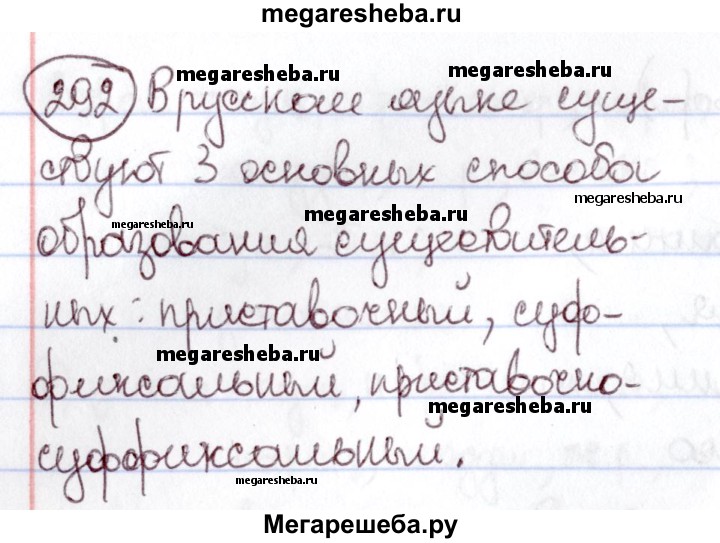 megaresheba.ru
292 В русском языке суще-
megaresheba.ru
megaresheba.ru
ствуют 3 основных способа
megaresheba.ru
megaresheba.ru
megaresheba.ru
образования существитель-
ных: приставочный, суф-
megaresheba.ru
фиксальный, приставочно-
megaresheba.ru
суффиксальный.
megaresheba.ru
Мегарешеба.ру